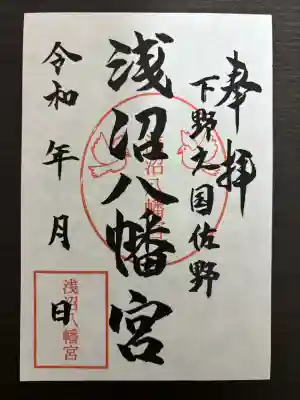 奉拝
下野之国佐野
浅沼八幡宮
令和 年 月 日
浅沼八幡宮
浅沼八幡宮